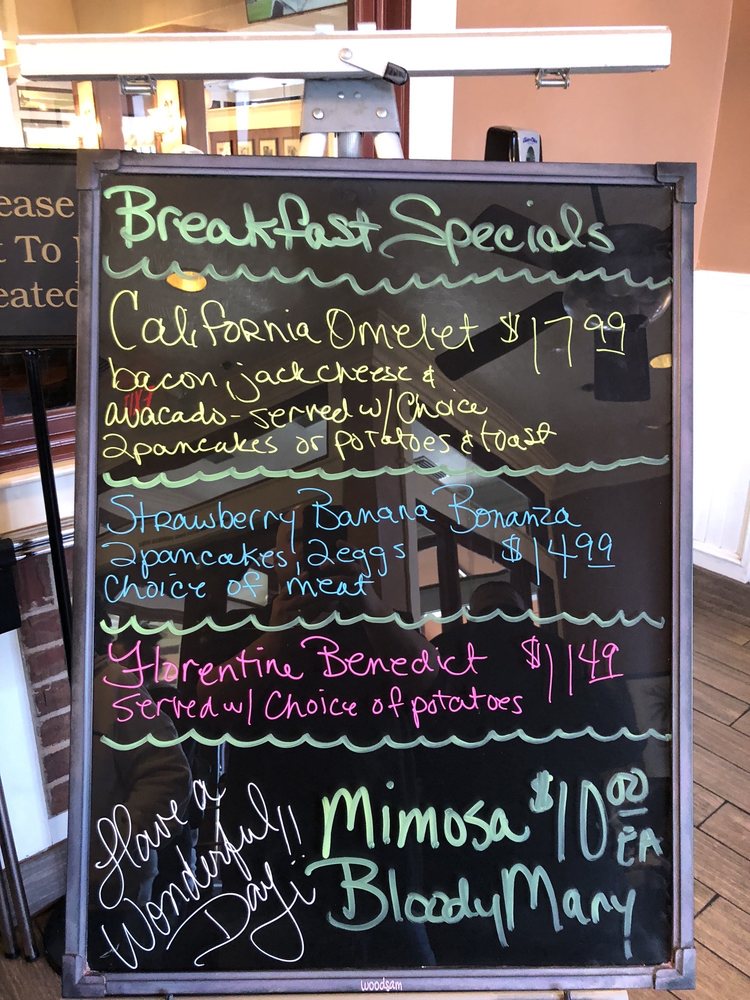 ease
t To
eated
Breakfast Specials
California Omelet $17.99
bacon, jack cheese &
avacado - served w/ Choice
2 pancakes or potatoes & toast
Strawberry Banana Bonanza
2 pancakes, 2 eggs $14.99
Choice of meat
Florentine Benedict $11.49
Served w/ Choice of potatoes
Have a
Wonderful
Day!!
Mimosa $10.00
EA
Bloody Mary
woodsam